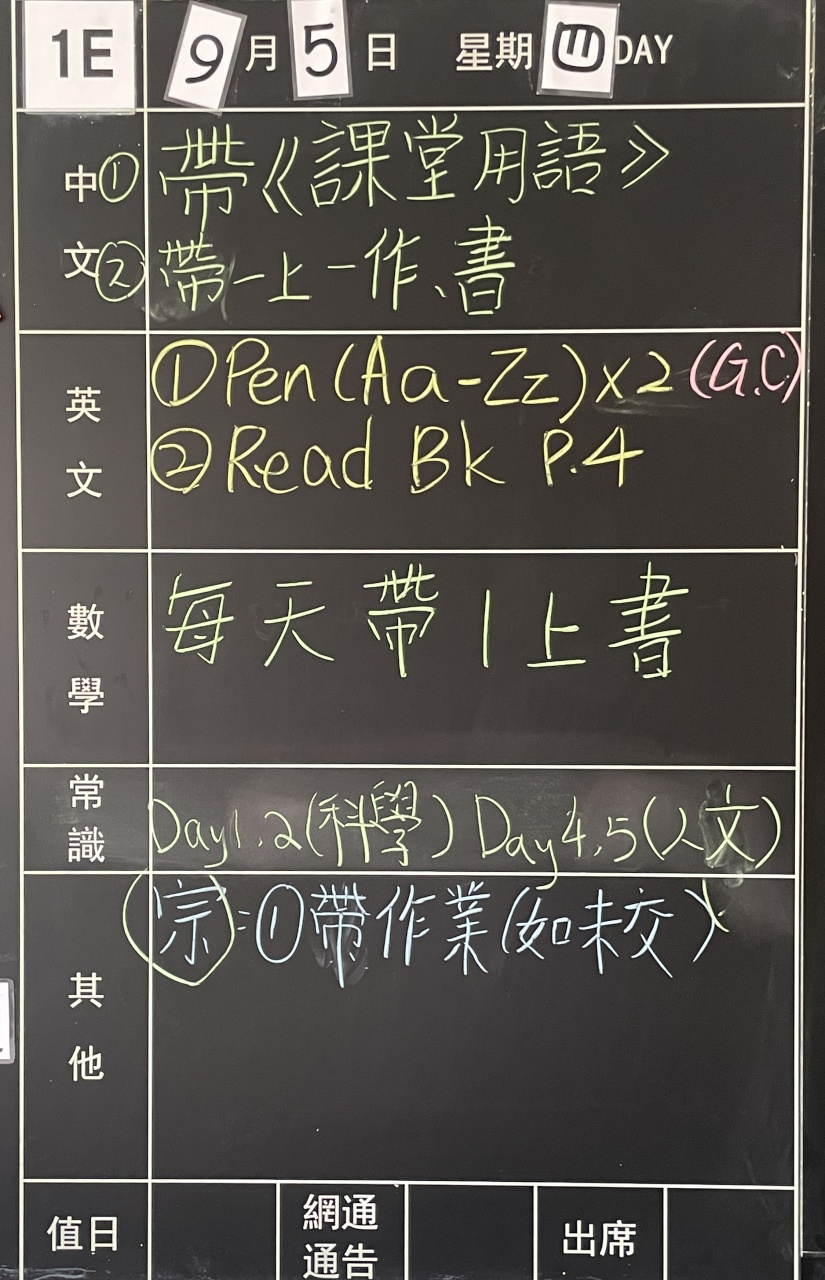 1E 9月5日 星期四DAY
中文
①帶《課堂用語》
②帶一上一作、書
英文
①Pen(Aa-Zz)x2(G.C)
②Read Bk P.4
數學
每天帶1上書
常識
Day1.2(科學) Day4.5(人文)
其他
宗:①帶作業(如未交)
值日
網通
通告
出席